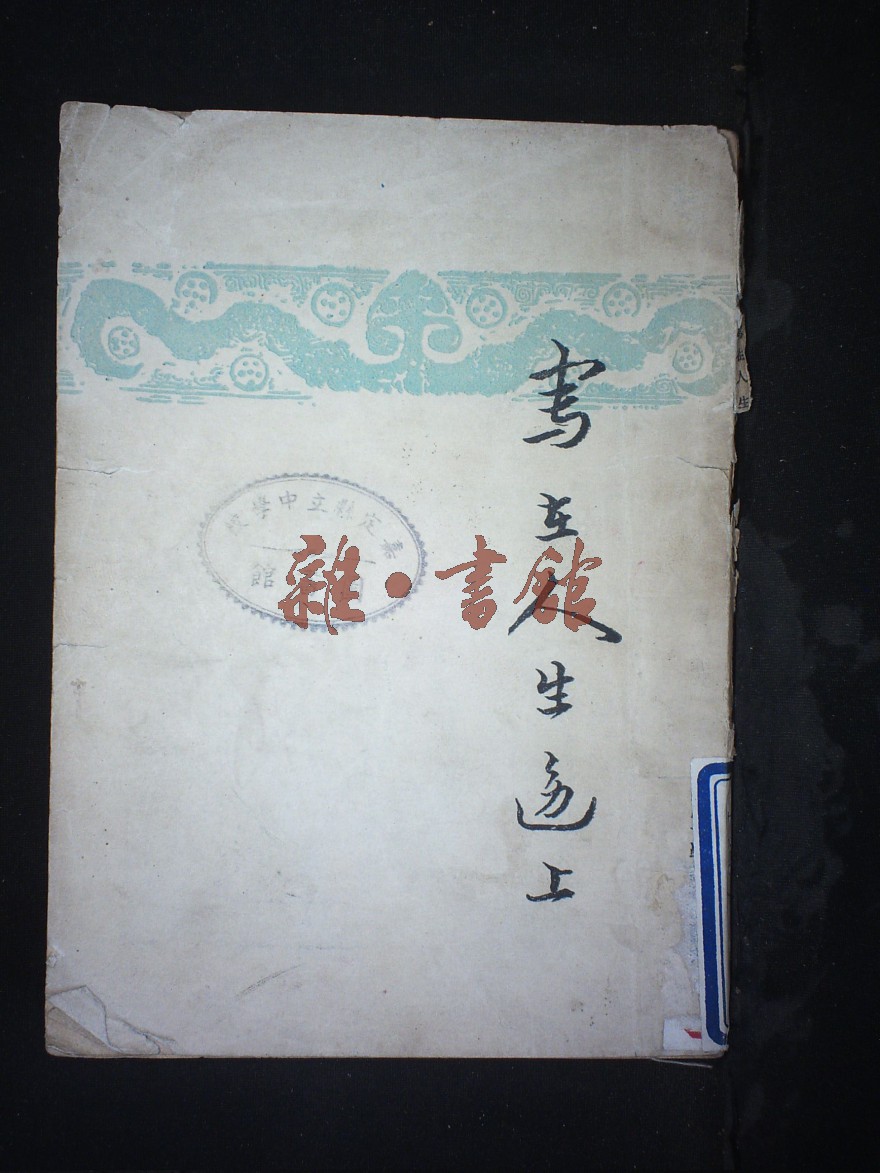 写在人生边上
嘉定縣立中學校
館
雜·書館